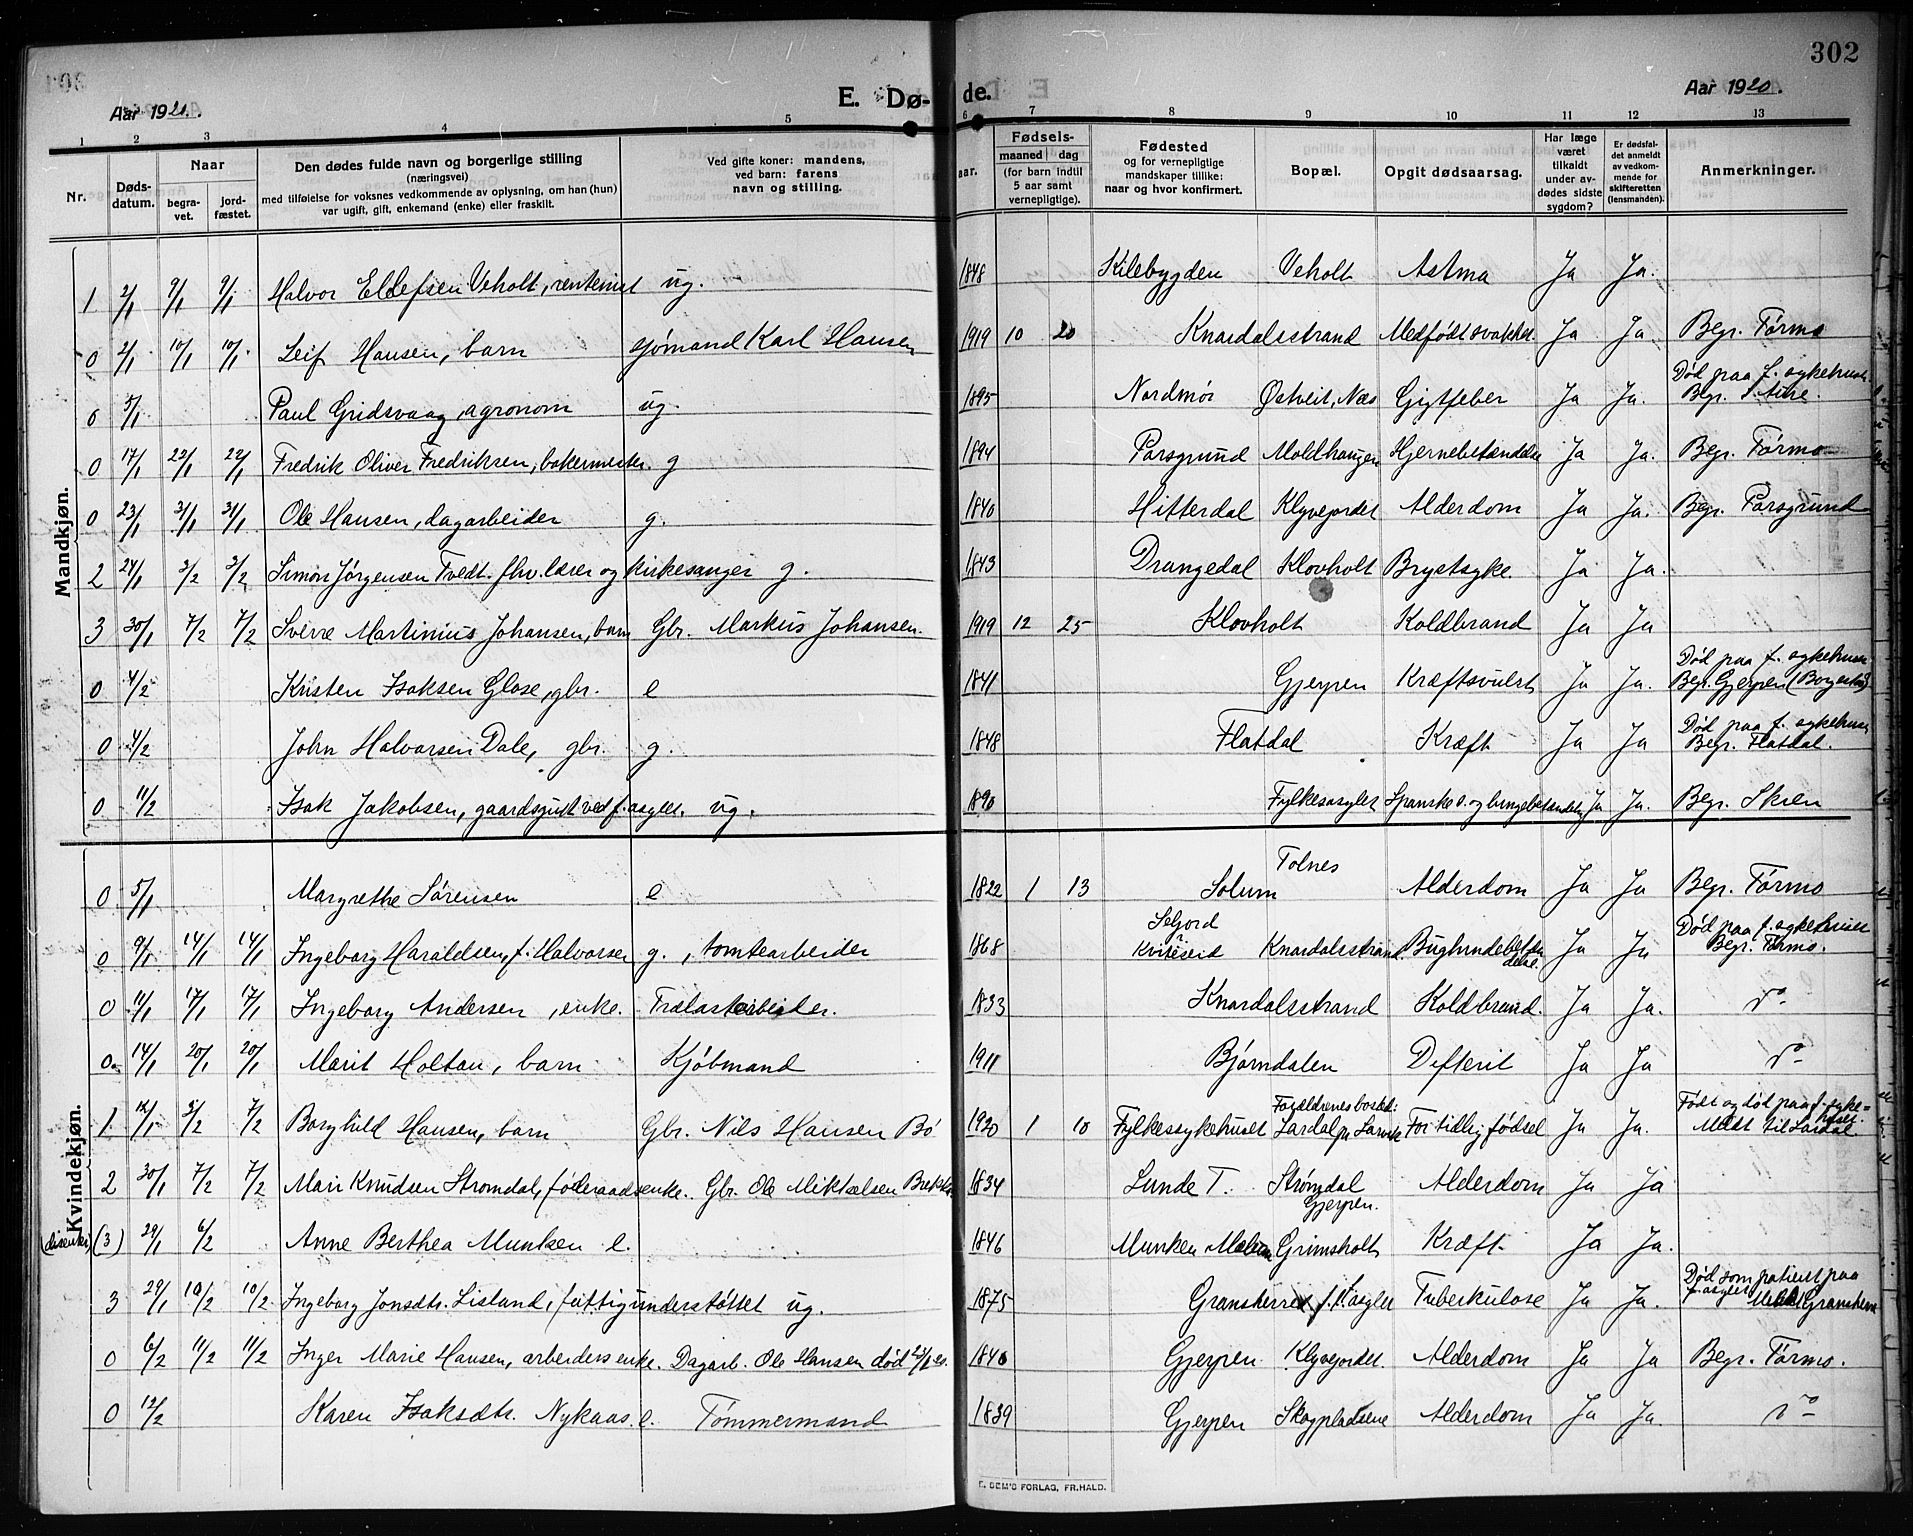 302
Aar 1921.
E. Dø-
de.
Aar 1920.
1 2 3 4 5 6 7 8 9 10 11 12 13
Nr.
Døds-
datum.
Naar
begra-
vet.
jord-
fæstet.
Den dødes fulde navn og borgerlige stilling
(næringsvei)
med tilføielse for voksnes vedkommende av oplysning, om han (hun)
var ugift, gift, enkemand (enke) eller fraskilt.
Ved gifte koner: mandens,
ved barn: farens
navn og stilling.
aar.
Fødsels-
maaned dag
(for barn indtil
5 aar samt
vernepligtige).
Fødested
og for vernepligtige
mandskaper tillike:
naar og hvor konfirmert.
Bopæl.
Opgit dødsaarsag.
Har læge
været
tilkaldt
under av-
dødes sidste
sygdom?
Er dødsfal-
det anmeldt
av vedkom-
mende for
skifteretten
(lensmanden).
Anmerkninger.
Mandkjøn.
1 2/1 9/1 9/1 Halvor Ellefsen Veholt, rentenist ug. 1848 Kilebygden Veholt Astma Ja Ja.
0 2/1 10/1 10/1 Leif Hansen, barn sjømand Karl Hansen 1919 10 20 Knardalsstrand Medfødt svakhet Ja Ja. Begr. Førmo
0 5/1 Paul Gridsvaag, agronom ug. 1895 Nordmør Østveit, Næs Gigtfeber Ja Ja. Død paa f. sykehuset
Begr.
0 17/1 22/1 22/1 Fredrik Oliver Fredriksen, bakermester. g 1894 Porsgrund Moldhaugen Hjernebetændelse Ja Ja. Begr. Førmo
0 23/1 31/1 31/1 Ole Hansen, dagarbeider g. 1840 Hitterdal Klyvejordet Alderdom Ja Ja. Begr. Porsgrund
2 24/1 3/2 3/2 Simon Jørgensen Tvedt. fhv. lærer og kirkesanger g. 1843 Drangedal Klovholt Brystsyke. Ja Ja.
3 30/1 7/2 7/2 Sverre Martinius Johansen, barn Gbr. Markus Johansen. 1919 12 25 Klovholt Koldbrand Ja Ja
0 4/2 Kristen Isaksen Glose, gbr. e 1841 Gjerpen Kræftsvulst Ja Ja. Død paa f. sykehuset
Begr. Gjerpen (Borgestad)
0 4/2 John Halvorsen Dale, gbr. g. 1848 Flatdal Kræft Ja Ja Død paa f. sykehuset
Begr. Flatdal.
0 11/2 Isak Jakobsen, gaardsgutt ved f. asylet. ug. 1890 Fylkesasylet Spanske s. og lungebetændelse Ja Ja. Begr. Skien
Kvindekjøn.
0 5/1 Margrethe Sørensen e 1822 1 13 Solum Tolnes Alderdom Ja Ja Begr. Førmo
0 9/1 14/1 14/1 Ingeborg Haraldsen, f. Halvorsen g., tomtearbeider 1868 Seljord
i
Kviteseid Knardalsstrand. Bughindebetæn
delse. Ja Ja Død paa f. sykehuset
Begr. Førmo.
0 11/1 17/1 17/1 Ingeborg Andersen, enke. Trælastarbeider. 1833 Knardalsstrand Koldbrand. Ja Ja. do
0 14/1 20/1 20/1 Marit Holtan, barn Kjøbmand 1911 Bjørndalen Difterit Ja Ja do
1 12/1 5/2 7/2 Borghild Hansen, barn Gbr. Nils Hansen Bø 1920 1 10 Fylkessykehuset Forældrenes bosted:
Lardal pr Larvik For tidlig fødsel Ja Ja. Født og død paa f. syke=
huset.
Meldt til Lardal
2 30/1 7/2 7/2 Mari Knudsen Strømdal, føderaadsenke. Gbr. Ole Mikkelsen 1834 Lunde T. Strømdal
Gjerpen. Alderdom Ja Ja
(disenter) (3) 29/1 6/2 Anne Berthea Munken e. 1846 Munken Melum Grimsholt Kræft Ja Ja.
3 29/1 10/2 10/2 Ingeborg Jonsdtr. Lisland, fattigunderstøttet ug. 1875 Gransherred f. asylet Tuberkulose Ja Ja. Død som patient paa
f. asylet Meldt Gransherred
0 6/2 11/2 11/2 Inger Marie Hansen, arbeidersenke. Dagarb. Ole Hansen død 23/1 1840 Gjerpen Klyvejordet Alderdom Ja Ja Begr. Førmo.
0 12/2 Karen Isaksdtr. Nykaas. e. Tømmermand 1839 Gjerpen Skogpladsene Alderdom Ja Ja. do
E. SEM'S FORLAG, FR.HALD.